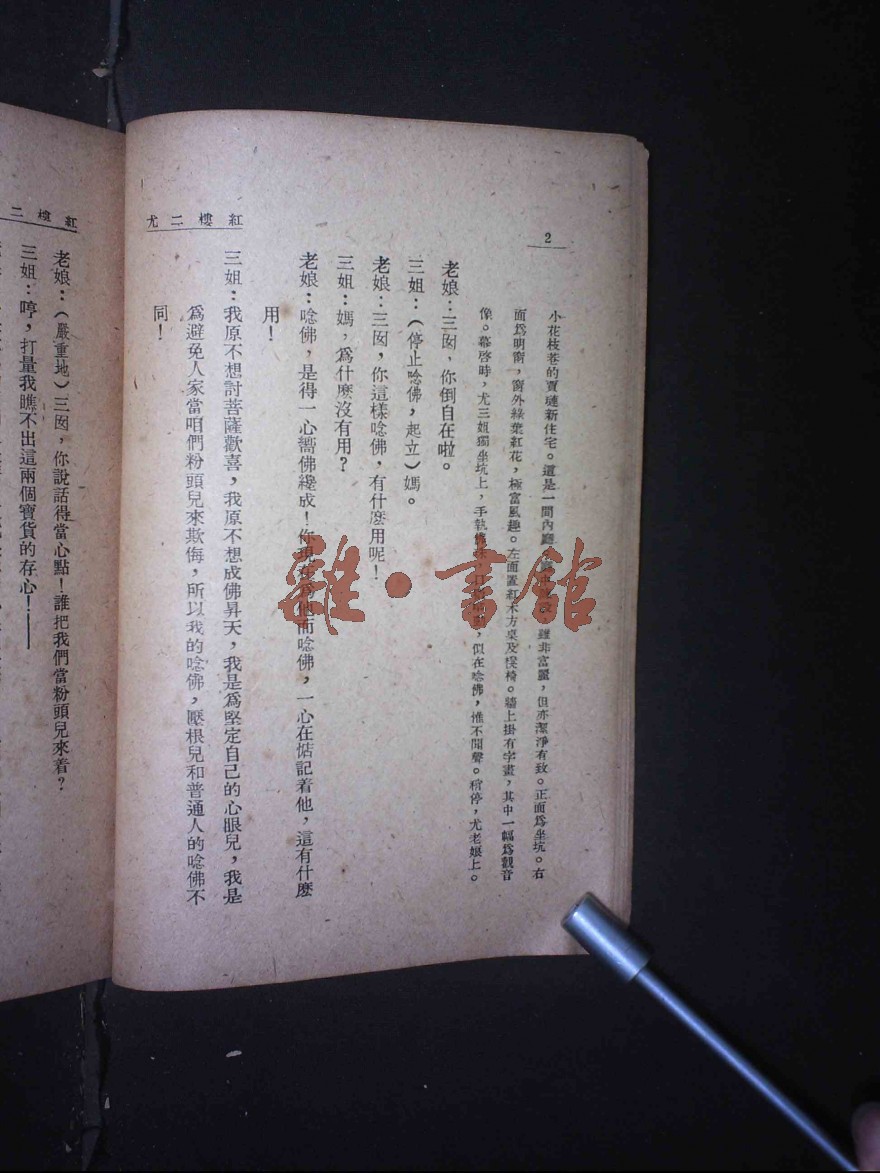 2
紅樓二尤
小花枝巷的賈璉新住宅。這是一間內廳，雖非富麗，但亦潔淨有致。正面爲坐炕。右
面爲明窗，窗外綠葉紅花，極富風趣。左面置紅木方桌及櫈椅。牆上掛有字畫，其中一幅爲觀音
像。幕啓時，尤三姐獨坐坑上，手執，似在唸佛，惟不聞聲。稍停，尤老娘上。
老娘：三囡，你倒自在啦。
三姐：（停止唸佛，起立）媽。
老娘：三囡，你這樣唸佛，有什麽用呢！
三姐：媽，爲什麽沒有用？
老娘：唸佛，是得一心嚮佛纔成！你現在爲他而唸佛，一心在惦記着他，這有什麽
用！
三姐：我原不想討菩薩歡喜，我原不想成佛昇天，我是爲堅定自己的心眼兒，我是
爲避免人家當咱們粉頭兒來欺侮，所以我的唸佛，壓根兒和普通人的唸佛不
同！
紅樓二
老娘：（嚴重地）三囡，你說話得當心點！誰把我們當粉頭兒來着？
三姐：哼，打量我瞧不出這兩個寶貨的存心！——
雜·書館